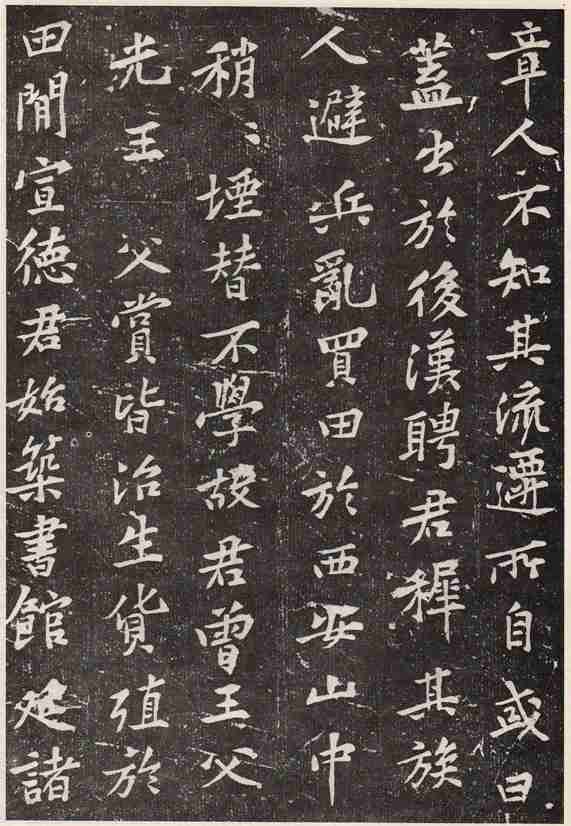 章人不知其流遷所自或曰
蓋出於後漢聘君穉其族
人避兵亂買田於西安山中
稍〻堙替不學故君曾王父
光王 父賞皆治生貨殖於
田閒宣德君始築書館延諸